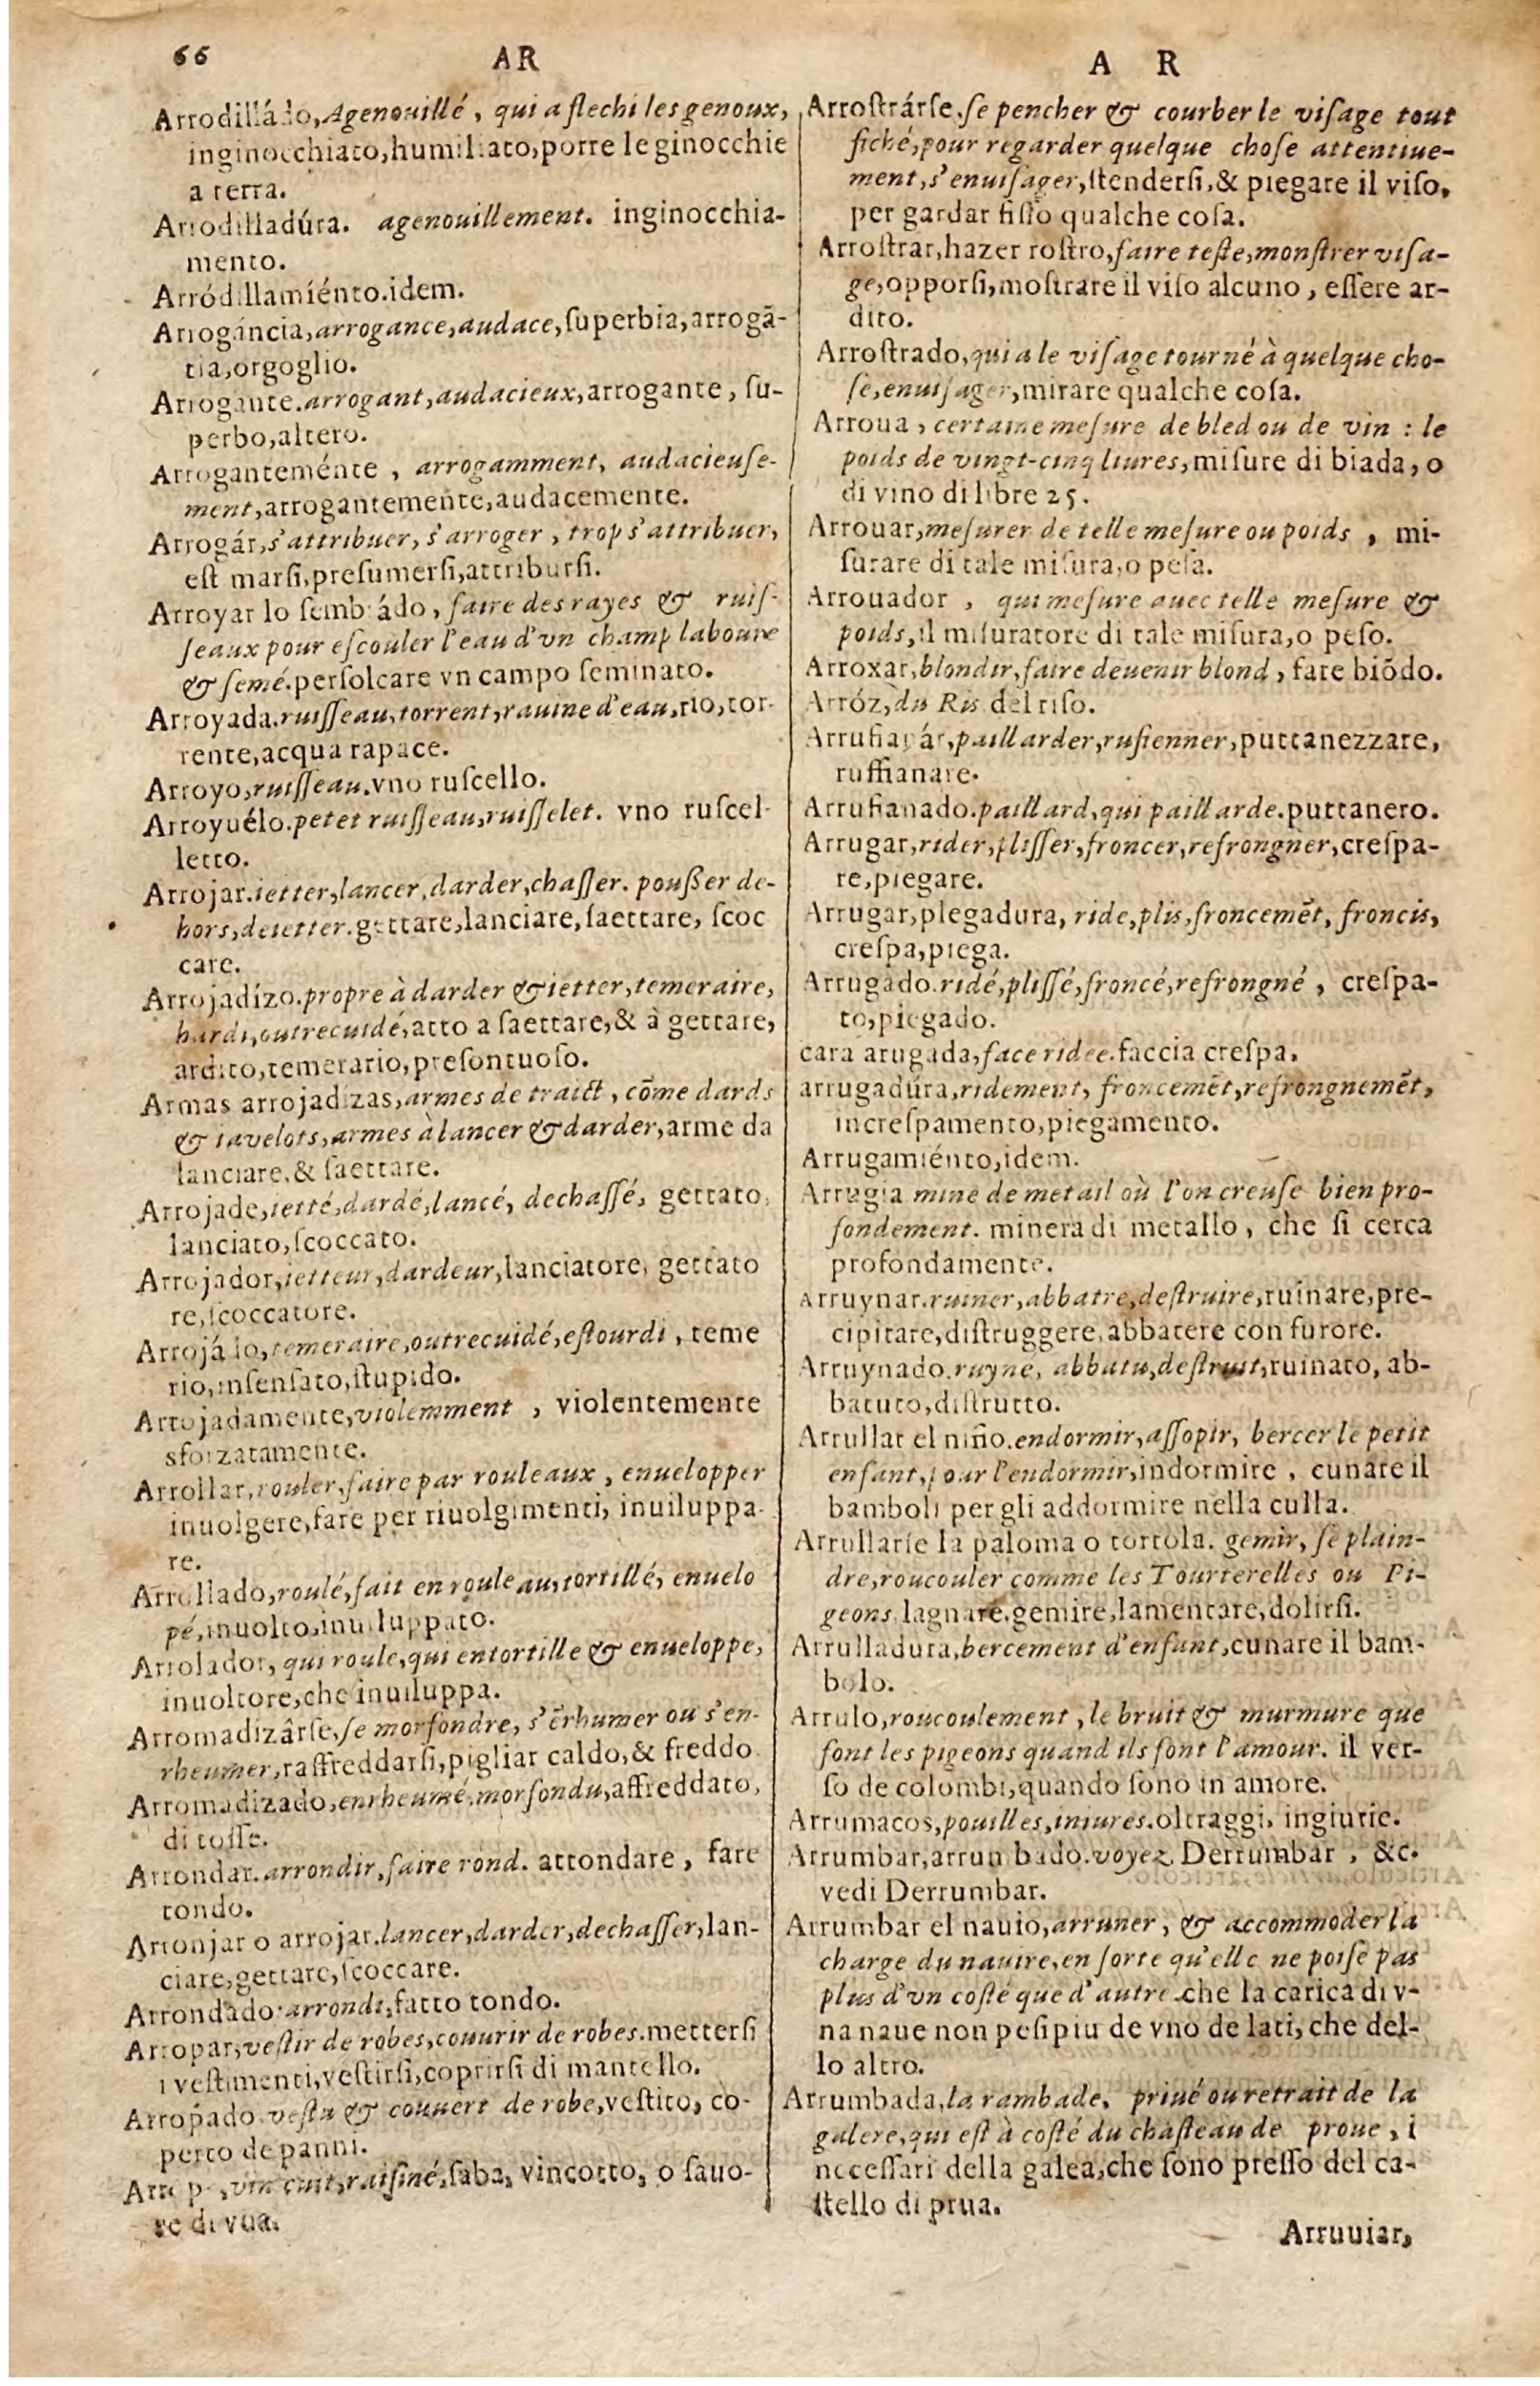 66 AR
Arrodilládo, Agenouillé, qui a flechi les genoux,
inginocchiato, humiliato, porre le ginocchie
a terra.
Arrodilladúra. agenouillement. inginocchia-
mento.
Arródillamiénto. idem.
Arrogáncia, arrogance, audace, ſuperbia, arrogā-
tia, orgoglio.
Arrogante. arrogant, audacieux, arrogante, ſu-
perbo, altero.
Arroganteménte, arrogamment, audacieuſe-
ment, arrogantemente, audacemente.
Arrogár, s'attribuer, s'arroger, trop s'attribuer,
eſt marſi, preſumerſi, attriburſi.
Arroyar lo ſembrádo, faire des rayes & ruiſ-
ſeaux pour eſcouler l'eau d'vn champ laboure
& ſemé. perſolcare vn campo ſeminato.
Arroyada. ruiſſeau, torrent, rauine d'eau, rio, tor-
rente, acqua rapace.
Arroyo, ruiſſeau. vno ruſcello.
Arroyuélo. petet ruiſſeau, ruiſſelet. vno ruſcel-
letto.
Arrojar. ietter, lancer, darder, chaſſer. pouſſer de-
hors, deietter. gettare, lanciare, ſaettare, ſcoc
care.
Arrojadízo. propre à darder & ietter, temeraire,
hardi, outrecuidé, atto a ſaettare, & à gettare,
ardito, temerario, preſontuoſo.
Armas arrojadizas, armes de traict, cōme dards
& iavelots, armes à lancer & darder, arme da
lanciare, & ſaettare.
Arrojade, ietté, dardé, lancé, dechaſſé, gettato,
lanciato, ſcoccato.
Arrojador, ietteur, dardeur, lanciatore, gettato
re, ſcoccatore.
Arrojádo, temeraire, outrecuidé, eſtourdi, teme
rio, inſenſato, ſtupido.
Arrojadamente, violemment, violentemente
sforzatamente.
Arrollar, rouler, faire par rouleaux, enuelopper
inuolgere, fare per riuolgimenti, inuiluppa-
re.
Arrollado, roulé, fait en rouleau, tortillé, enuelo
pé, inuolto, inuiluppato.
Arrolador, qui roule, qui entortille & enueloppe,
inuoltore, che inuiluppa.
Arromadizârſe, ſe morfondre, s'ērhumer ou s'en-
rheumer, raffreddarſi, pigliar caldo, & freddo
Arromadizado, enrheumé, morfondu, affreddato,
di toſſe.
Arrondar. arrondir, faire rond. attondare, fare
tondo.
Arronjar o arrojar. lancer, darder, dechaſſer, lan-
ciare, gettare, ſcoccare.
Arrondado. arrondi, fatto tondo.
Arropar, veſtir de robes, couurir de robes. metterſi
i veſtimenti, veſtirſi, coprirſi di mantello.
Arropado. veſtu & couuert de robe, veſtito, co-
perto de panni.
vin cuit, raiſiné, ſaba, vincotto, o ſauo-
re di vua.
A R
Arroſtrárſe. ſe pencher & courber le viſage tout
fiché, pour regarder quelque choſe attentiue-
ment, s'enuiſager, ſtenderſi, & piegare il viſo,
per gardar fiſſo qualche coſa.
Arroſtrar, hazer roſtro, faire teſte, monſtrer viſa-
ge, opporſi, moſtrare il viſo alcuno, eſſere ar-
dito.
Arroſtrado, qui a le viſage tourné à quelque cho-
ſe, enuiſager, mirare qualche coſa.
Arroua, certaine meſure de bled ou de vin : le
poids de vingt-cinq liures, miſure di biada, o
di vino di libre 25.
Arrouar, meſurer de telle meſure ou poids, mi-
ſurare di tale miſura, o peſa.
Arrouador, qui meſure auec telle meſure &
poids, il miſuratore di tale miſura, o peſo.
Arroxar, blondir, faire deuenir blond, fare biōdo.
Arróz, du Ris del riſo.
Arrufianár, paillarder, rufienner, puttanezzare,
ruffianare.
Arrufianado. paillard, qui paillarde. puttanero.
Arrugar, rider, pliſſer, froncer, refrongner, creſpa-
re, piegare.
Arrugar, plegadura, ride, plis, froncemēt, froncis,
creſpa, piega.
Arrugado. ridé, pliſſé, froncé, refrongné, creſpa-
to, piegado.
cara arugada, face ridee. faccia creſpa.
arrugadúra, ridement, froncemēt, refrongnemēt,
increſpamento, piegamento.
Arrugamiénto, idem.
Arrugia mine de metail où l'on creuſe bien pro-
fondement. minera di metallo, che ſi cerca
profondamente.
Arruynar. ruiner, abbatre, deſtruire, ruinare, pre-
cipitare, diſtruggere, abbatere con furore.
Arruynado. ruyné, abbatu, deſtruit, ruinato, ab-
batuto, diſtrutto.
Arrullar el niño. endormir, aſſopir, bercer le petit
enfant, pour l'endormir, indormire, cunare il
bamboli per gli addormire nella culla.
Arrullarſe la paloma o tortola. gemir, ſe plain-
dre, roucouler comme les Tourterelles ou Pi-
geons, lagnare, gemire, lamentare, dolirſi.
Arrulladura, bercement d'enfant, cunare il bam-
bolo.
Arrulo, roucoulement, le bruit & murmure que
font les pigeons quand ils font l'amour. il ver-
ſo de colombi, quando ſono in amore.
Arrumacos, pouilles, iniures. oltraggi, ingiurie.
Arrumbar, arrumbado. voyez Derrumbar, &c.
vedi Derrumbar.
Arrumbar el nauio, arruner, & accommoder la
charge du nauire, en ſorte qu'elle ne poiſe pas
plus d'vn coſté que d'autre. che la carica di v-
na naue non peſi piu de vno de lati, che del-
lo altro.
Arrumbada, la rambade, priué ou retrait de la
galere, qui eſt à coſté du chaſteau de proue, i
neceſſari della galea, che ſono preſſo del ca-
ſtello di prua.
Arruuiar,